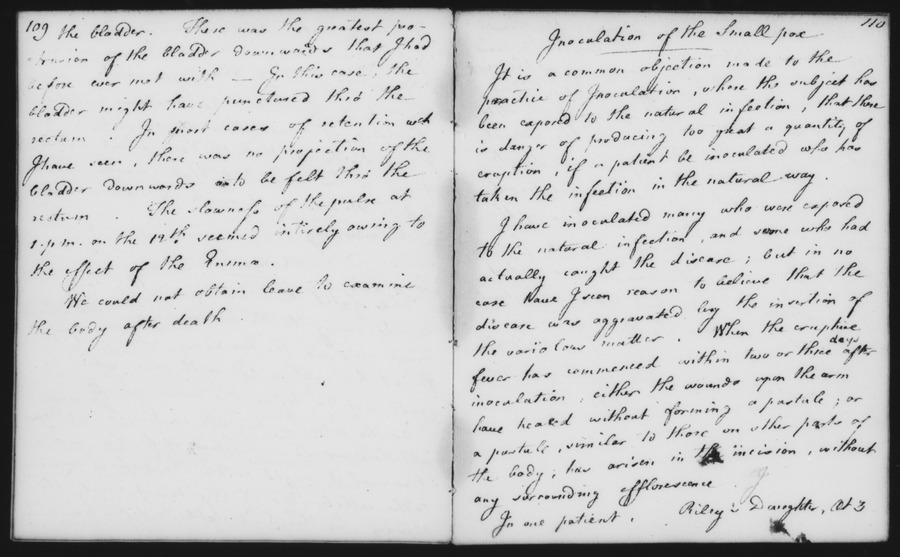 109 the bladder. There was the greatest pro-
trusion of the bladder downwards that I had
before ever met with — In this case, the
bladder might have punctured thro' the
rectum. In most cases of retention wch
I have seen, there was no projection of the
bladder downwards to be felt thro' the
rectum. The slowness of the pulse at
1. p.m. on the 19th seemed intirely owing to
the effect of the Enema.
We could not obtain leave to examine
the body after death.
110
Inoculation of the Small pox
It is a common objection made to the
practice of Inoculation, where the subject has
been exposed to the natural infection, that there
is danger of producing too great a quantity of
eruption, if a patient be inoculated who has
taken the infection in the natural way.
I have inoculated many who were exposed
to the natural infection, and some who had
actually caught the disease; but in no
case have I seen reason to believe that the
disease was aggravated by the insertion of
the variolous matter. When the eruptive
fever has commenced within two or three days after
inoculation, either the wounds upon the arm
have healed without forming a pustule; or
a pustule, similar to those on other parts of
the body, has arisen in the incision, without
any surrounding efflorescence.
In one patient, Riley's Daughter, Æt 3